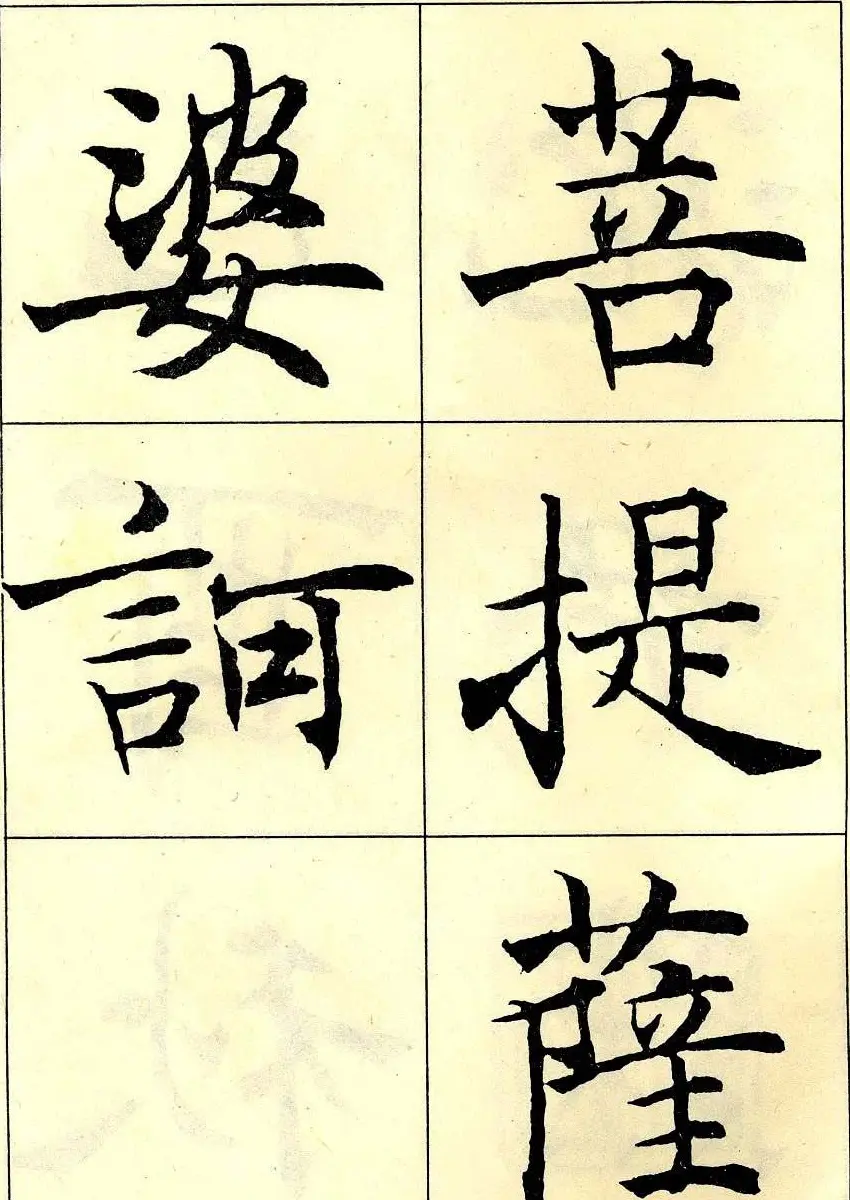 菩提薩
婆訶